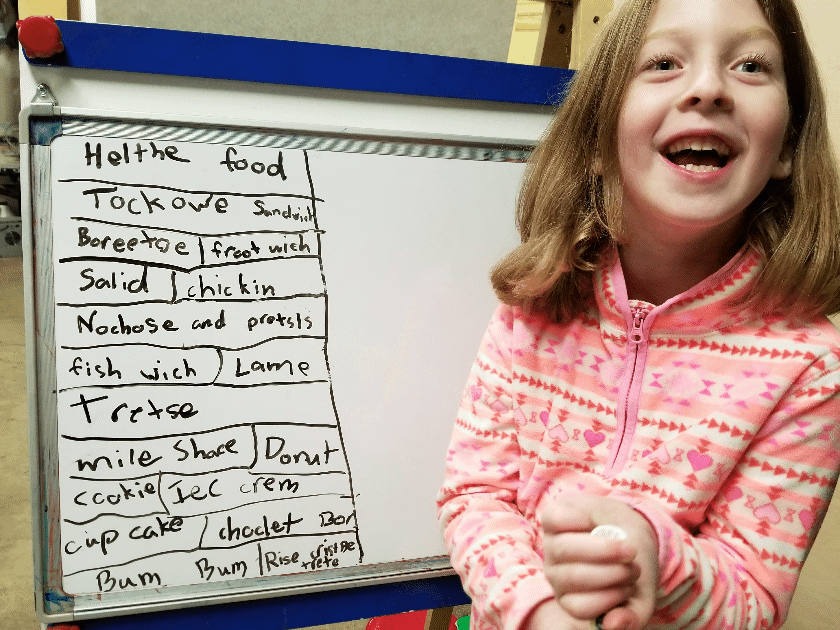 Helthe food
Tockowe Sandwich
Boreetoe froot wich
Salid chickin
Nochose and pretsls
fish wich Lame
Tretse
mile Shace Donut
cookie Iec crem
cup cake choclet Bar
Bum Bum Rise cristpe
trete